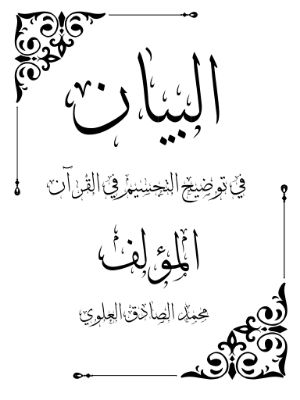 البيان
في توضيح التجسيم في القرآن
المؤلف
محمد الصادق العلوي